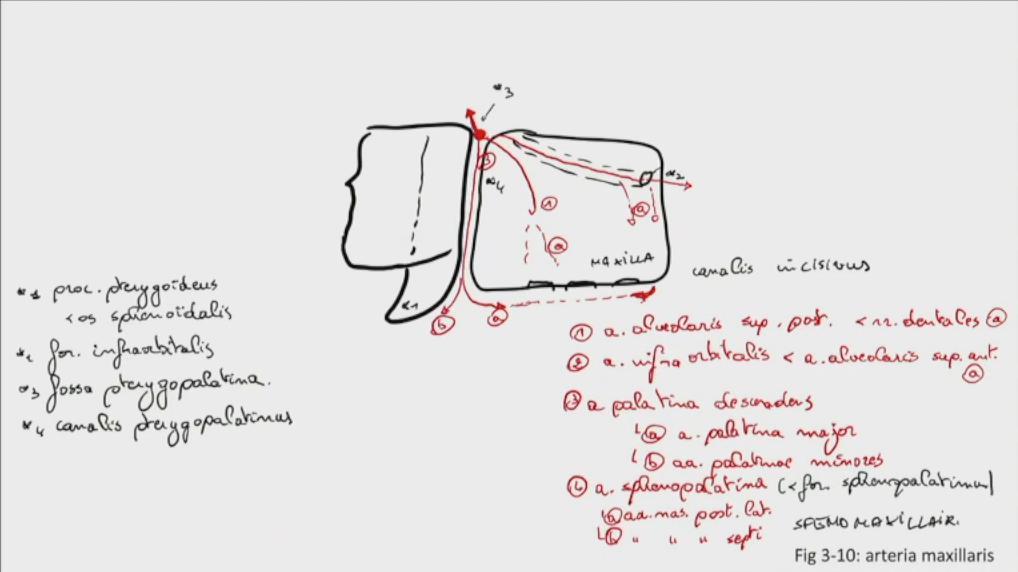 *3
3
*4
*2
1
a
a
MAXILLA
canalis incisivus
*1
b
a
*1 proc. pterygoïdeus
< os sphenoïdalis
*2 for. infraorbitalis
*3 fossa pterygopalatina.
*4 canalis pterygopalatinus
1 a. alveolaris sup. post. < rr. dentales a
2 a. infraorbitalis < a. alveolaris sup. ant.
a
3 a palatina descendens
a a. palatina major
b aa. palatinae minores
4 a. sphenopalatina (< for. sphenopalatinum)
a aa. nas. post. lat.
b " " " septi
SFENOMAXILLAIR.
Fig 3-10: arteria maxillaris